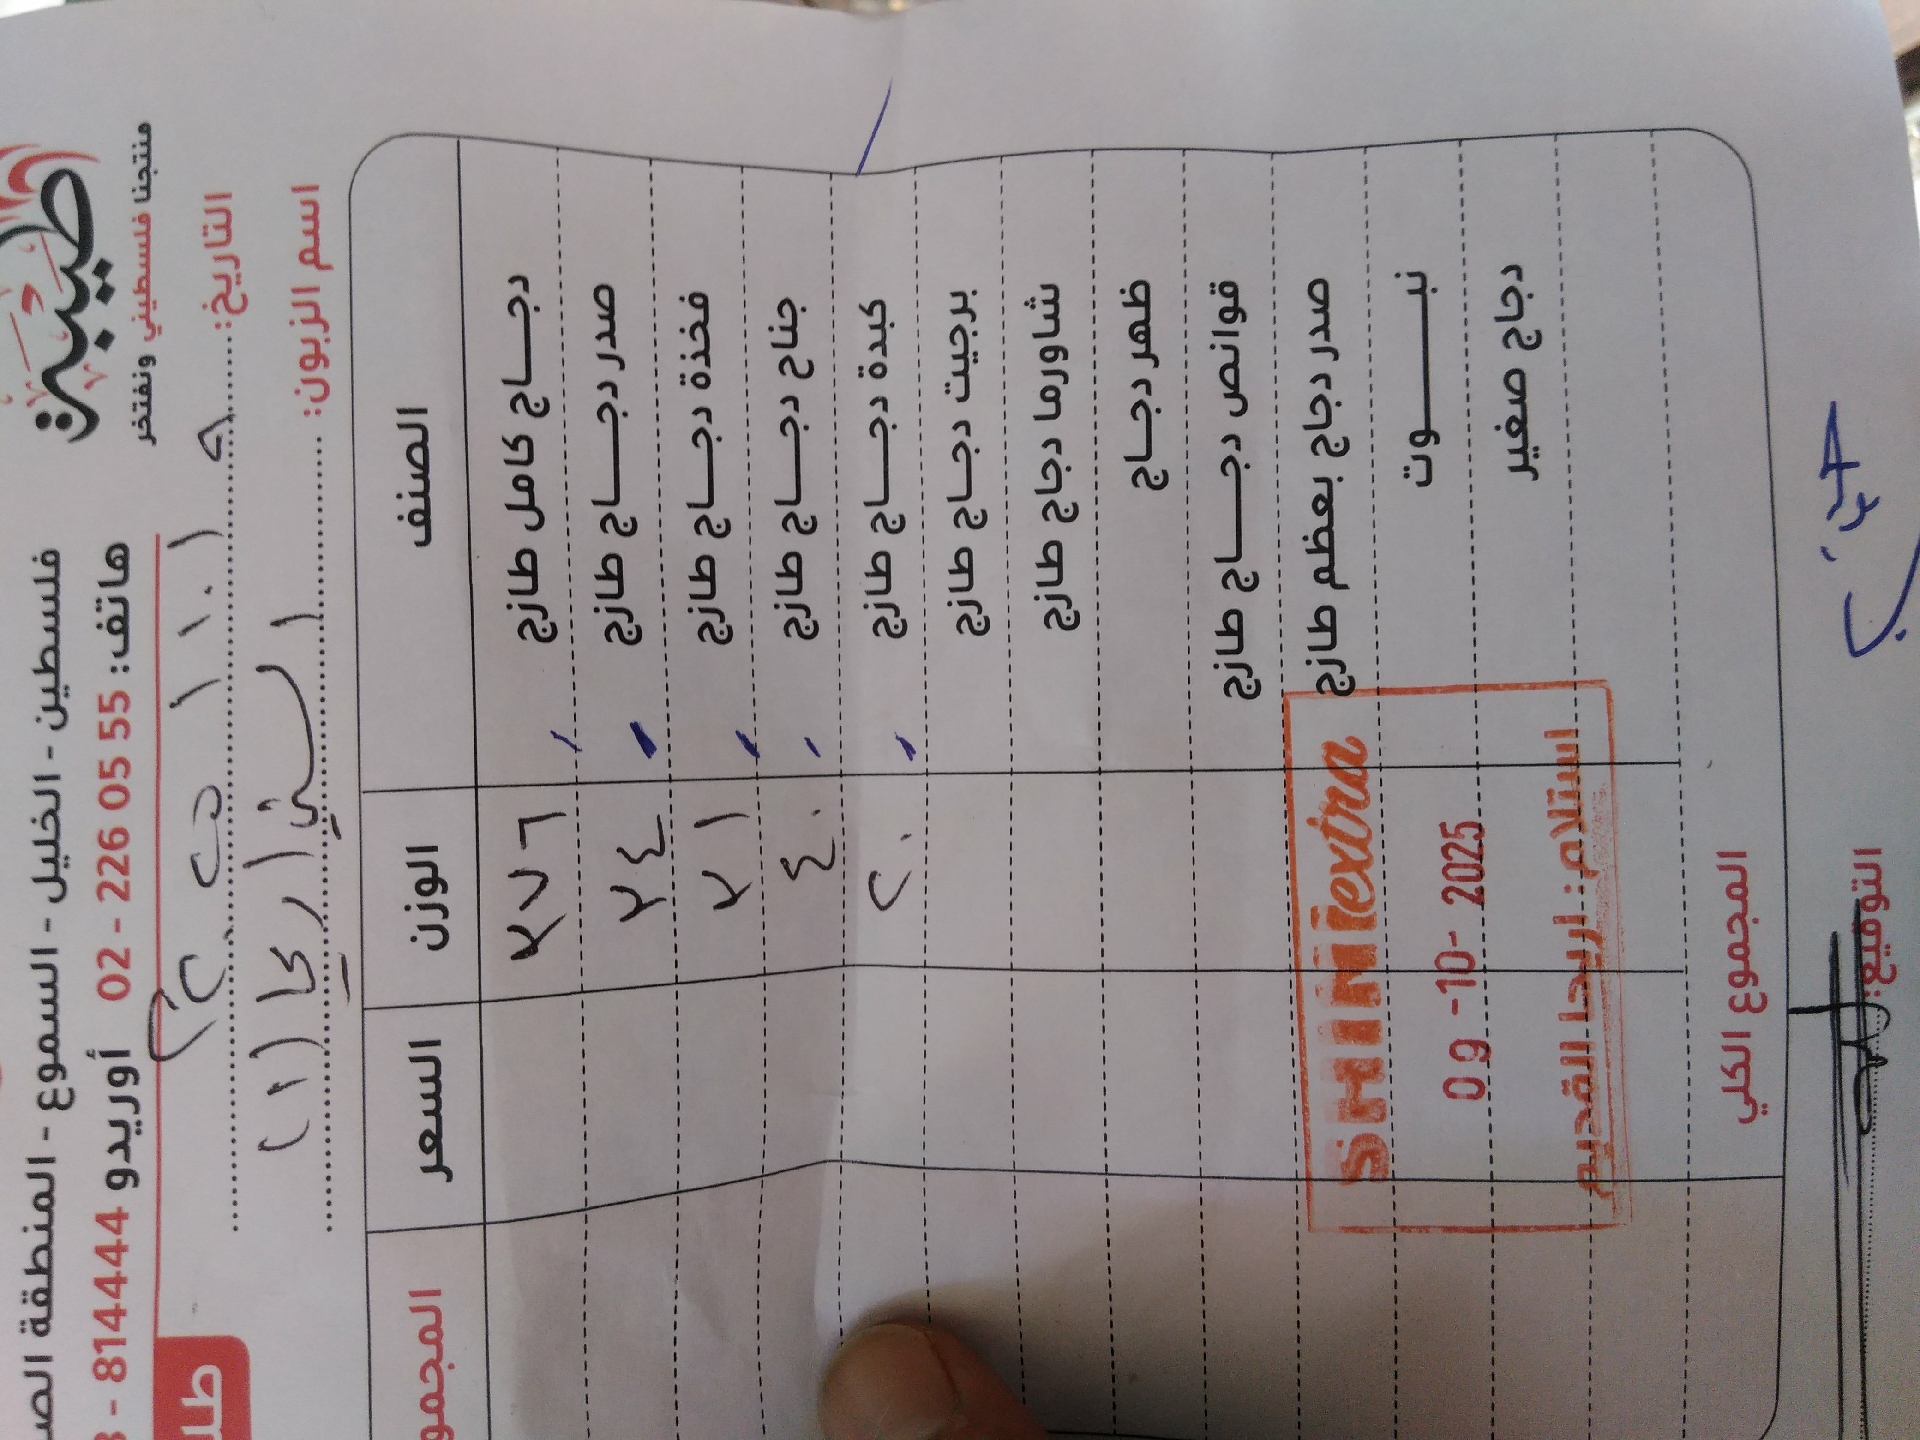 طيبة
منتجنا فلسطيني ونفتخر
فلسطين - الخليل - السموع - المنطقة الص
هاتف: 02 - 226 05 55 أوريدو 814444 - 8
التاريخ: ٩ / ١٠ / ٢٠٢٥
اسم الزبون: الشني / اريحا (١)
طلـ
الصنف الوزن السعر المجمو
دجاج كامل طازج ٢٧٦
صدر دجاج طازج ٢٤
فخذة دجاج طازج ٢١
جناح دجاج طازج ٤٠
كبدة دجاج طازج ٢٠
برجيت دجاج طازج
شاورما دجاج طازج
ظهر دجاج
قوانص دجاج طازج
صدر دجاج بعظم طازج
نبوت
دجاج صغير
SHINI extra
09 -10- 2025
استلام: اريحا القديم
المجموع الكلي
التوقيع: